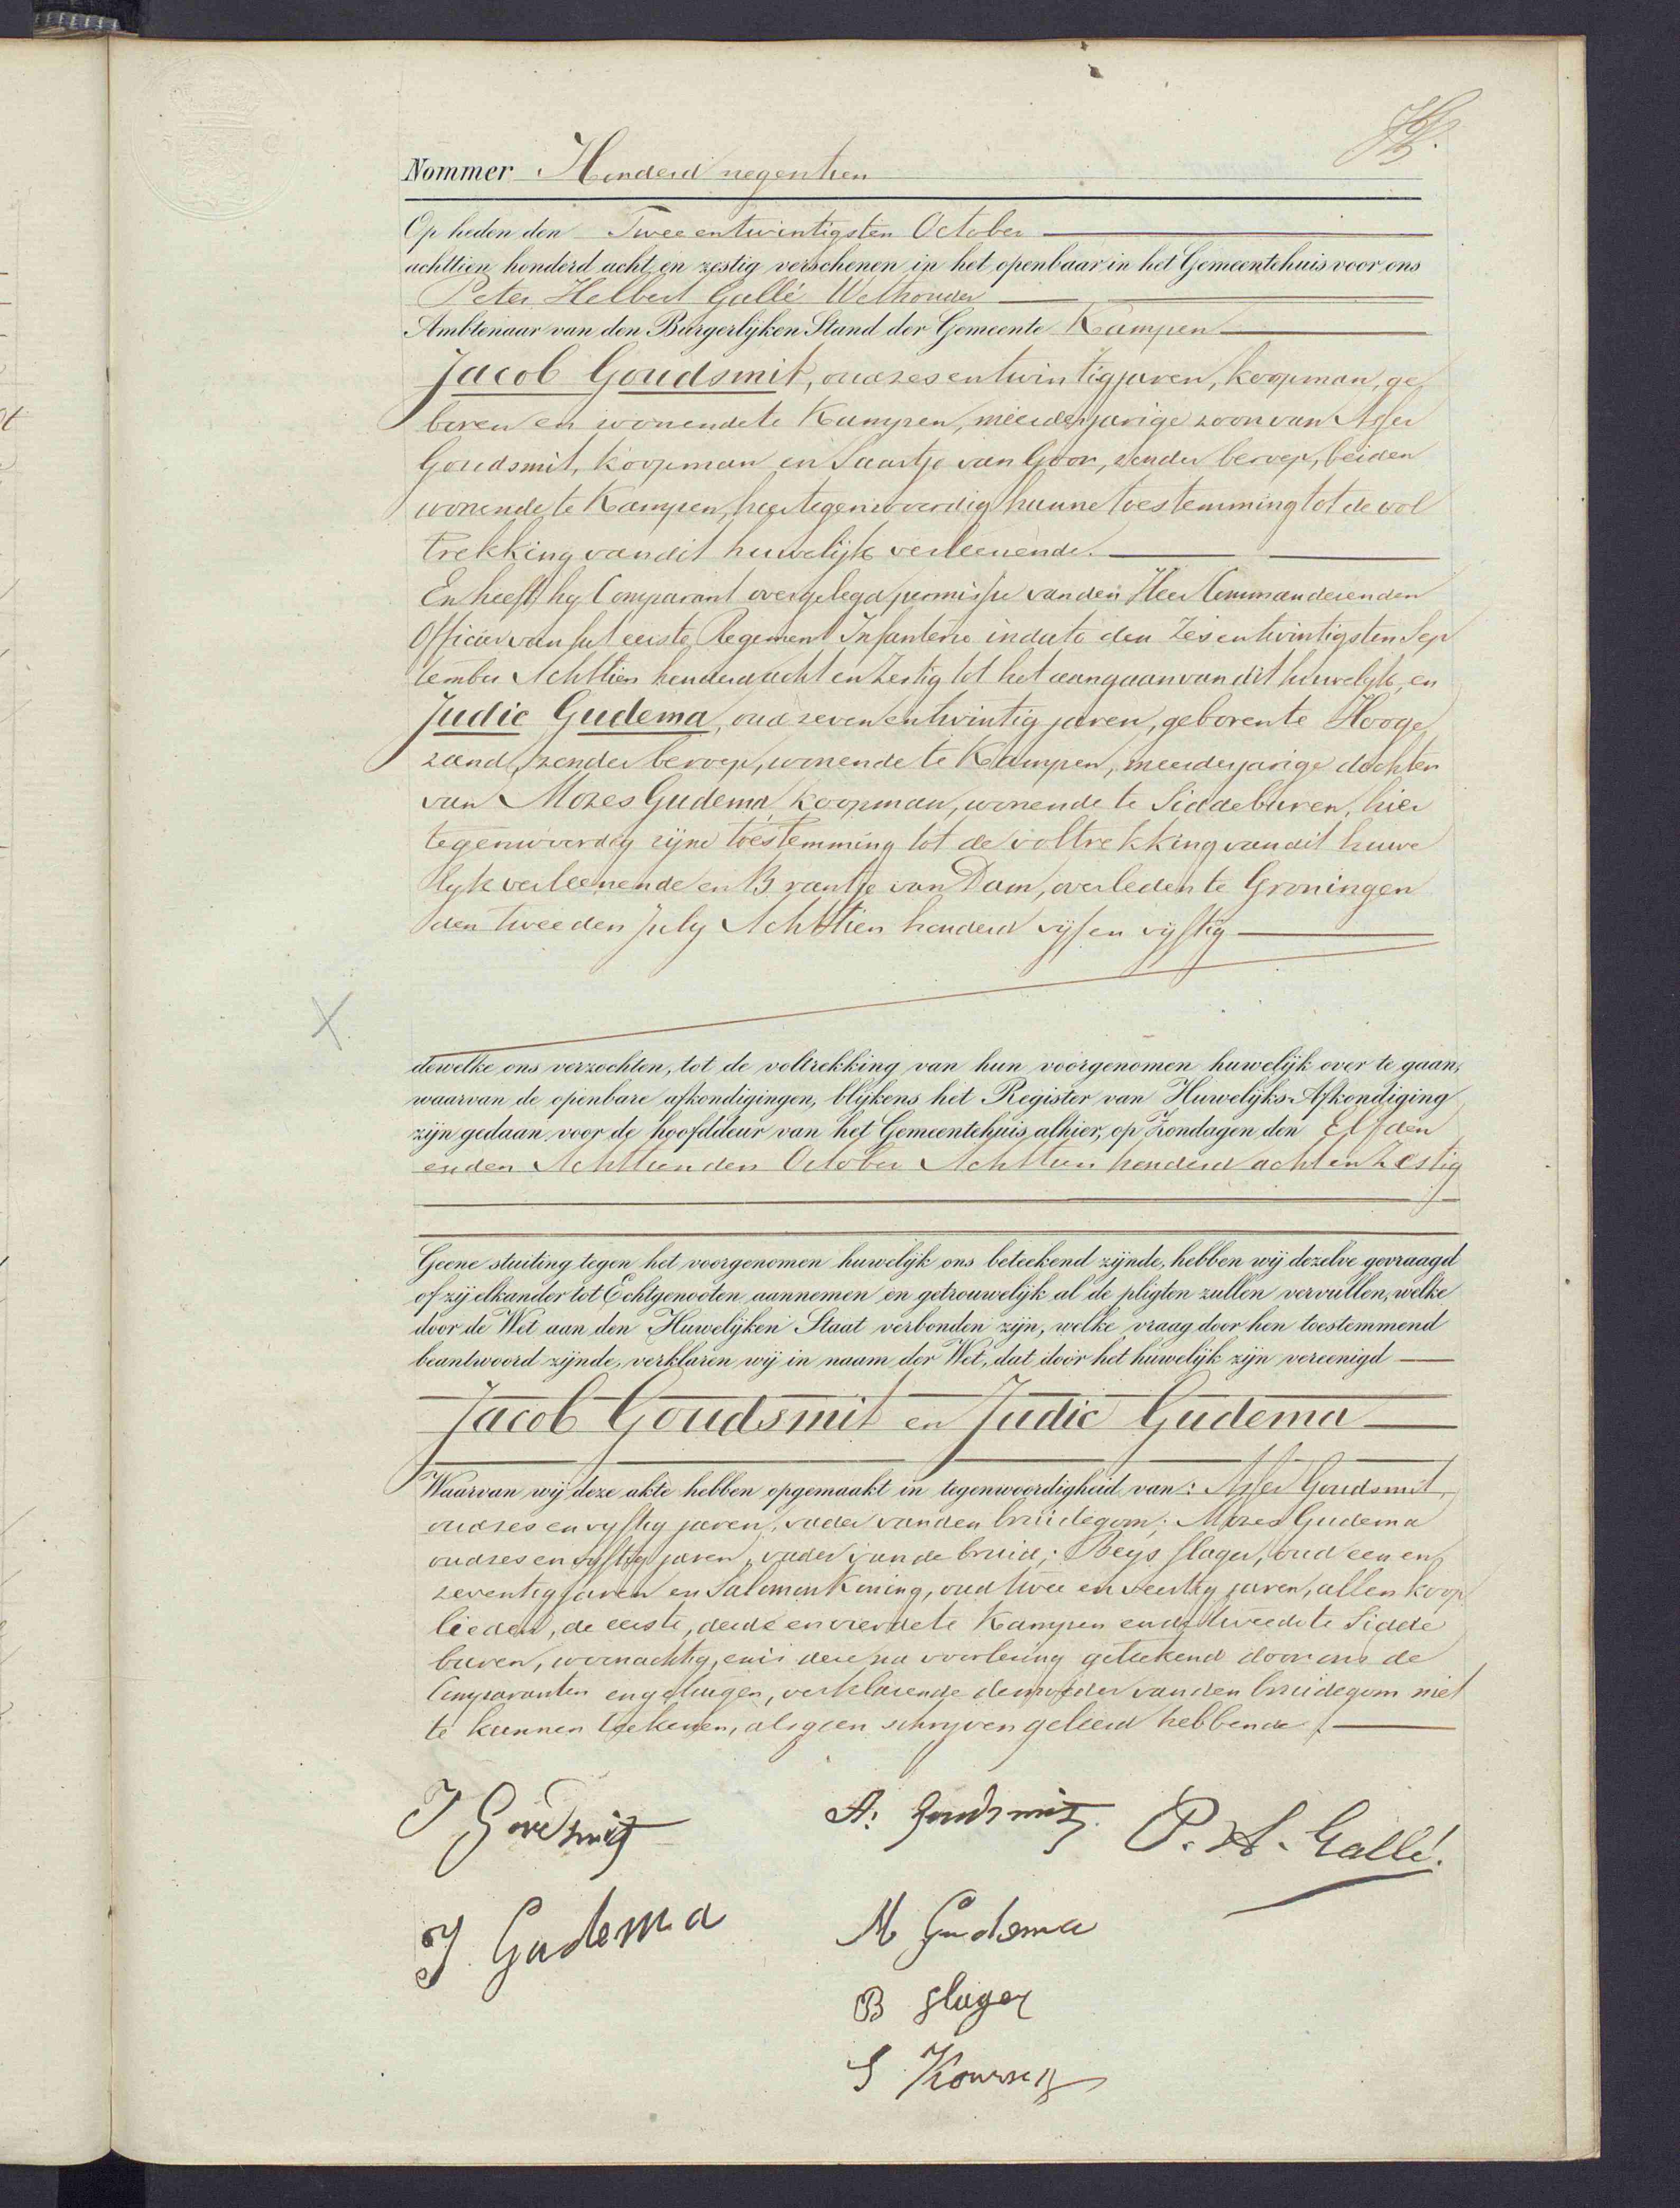 Nommer Honderd negentien
Op heden den Tweeentwintigsten October
achttien honderd acht en zestig verschenen in het openbaar in het Gemeentehuis voor ons
Peter Helbert Gallé Wethouder
Ambtenaar van den Burgerlijken Stand der Gemeente Kampen
Jacob Goudsmit, oud zes en twintig jaren, koopman, ge
boren en wonende te Kampen, meerderjarige zoon van Asser
Goudsmit, koopman en Saartje van Goor, zonder beroep, beiden
wonende te Kampen, hier tegenwoordig hunne toestemming tot de vol
trekking van dit huwelijk verleenende.
En heeft hij Comparant overgelegd permissie van den Heer Commanderenden
Officier van het eerste Regement Infanterie in dato den Zesentwintigsten Sep
tember Achttien honderd acht en Zestig tot het aangaan van dit huwelijk, en
Judic Gudema, oud zeven en twintig jaren, geboren te Hooge
zand, zonder beroep, wonende te Kampen, meerderjarige dochter
van Mozes Gudema, koopman, wonende te Siddeburen, hier
tegenwoordig zijne toestemming tot de voltrekking van dit huwe
lijk verleenende en Brantje van Dam, overleden te Groningen
den tweeden July Achttien honderd vijf en vijftig
dewelke ons verzochten, tot de voltrekking van hun voorgenomen huwelijk over te gaan,
waarvan de openbare afkondigingen, blijkens het Register van Huwelijks-Afkondiging
zijn gedaan voor de hoofddeur van het Gemeentehuis alhier, op Zondagen den Elfden
en den Achttienden October Achttien honderd acht en Zestig
Geene stuiting tegen het voorgenomen huwelijk ons beteekend zijnde, hebben wij dezelve gevraagd
of zij elkander tot Echtgenooten aannemen en getrouwelijk al de pligten zullen vervullen, welke
door de Wet aan den Huwelijken Staat verbonden zijn, welke vraag door hen toestemmend
beantwoord zijnde, verklaren wij in naam der Wet, dat door het huwelijk zijn vereenigd
Jacob Goudsmit en Judic Gudema
Waarvan wij deze akte hebben opgemaakt in tegenwoordigheid van: Asser Goudsmit,
oud zes en vijftig jaren, vader van den bruidegom; Mozes Gudema
oud zes en vijftig jaren, vader van de bruid; Beijs Slager, oud een en
zeventig jaren en Salomon Koning, oud twee en veertig jaren, allen koop
lieden, de eerste, derde en vierde te Kampen en de tweede te Sidde
buren, woonachtig, en is deze na voorlezing geteekend door ons de
Comparanten en getuigen, verklarende de moeder van den bruidegom niet
te kunnen teekenen, als geen schrijven geleerd hebbende.
J Goudsmit A: Goudsmit. P. H. Gallé.
J. Gudema M Gudema
B Slager
S Koning